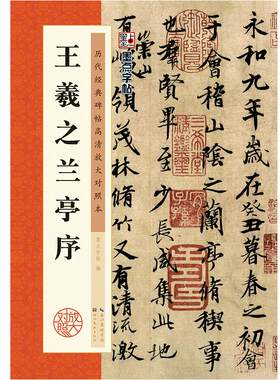 墨点字帖
历代经典碑帖高清放大对照本
王羲之兰亭序
墨点字帖 编
放大对照
永和九年歲在癸丑暮春之初會
于會稽山陰之蘭亭脩稧事
也羣賢畢至少長咸集此地
崇山
有峻領茂林脩竹又有清流激